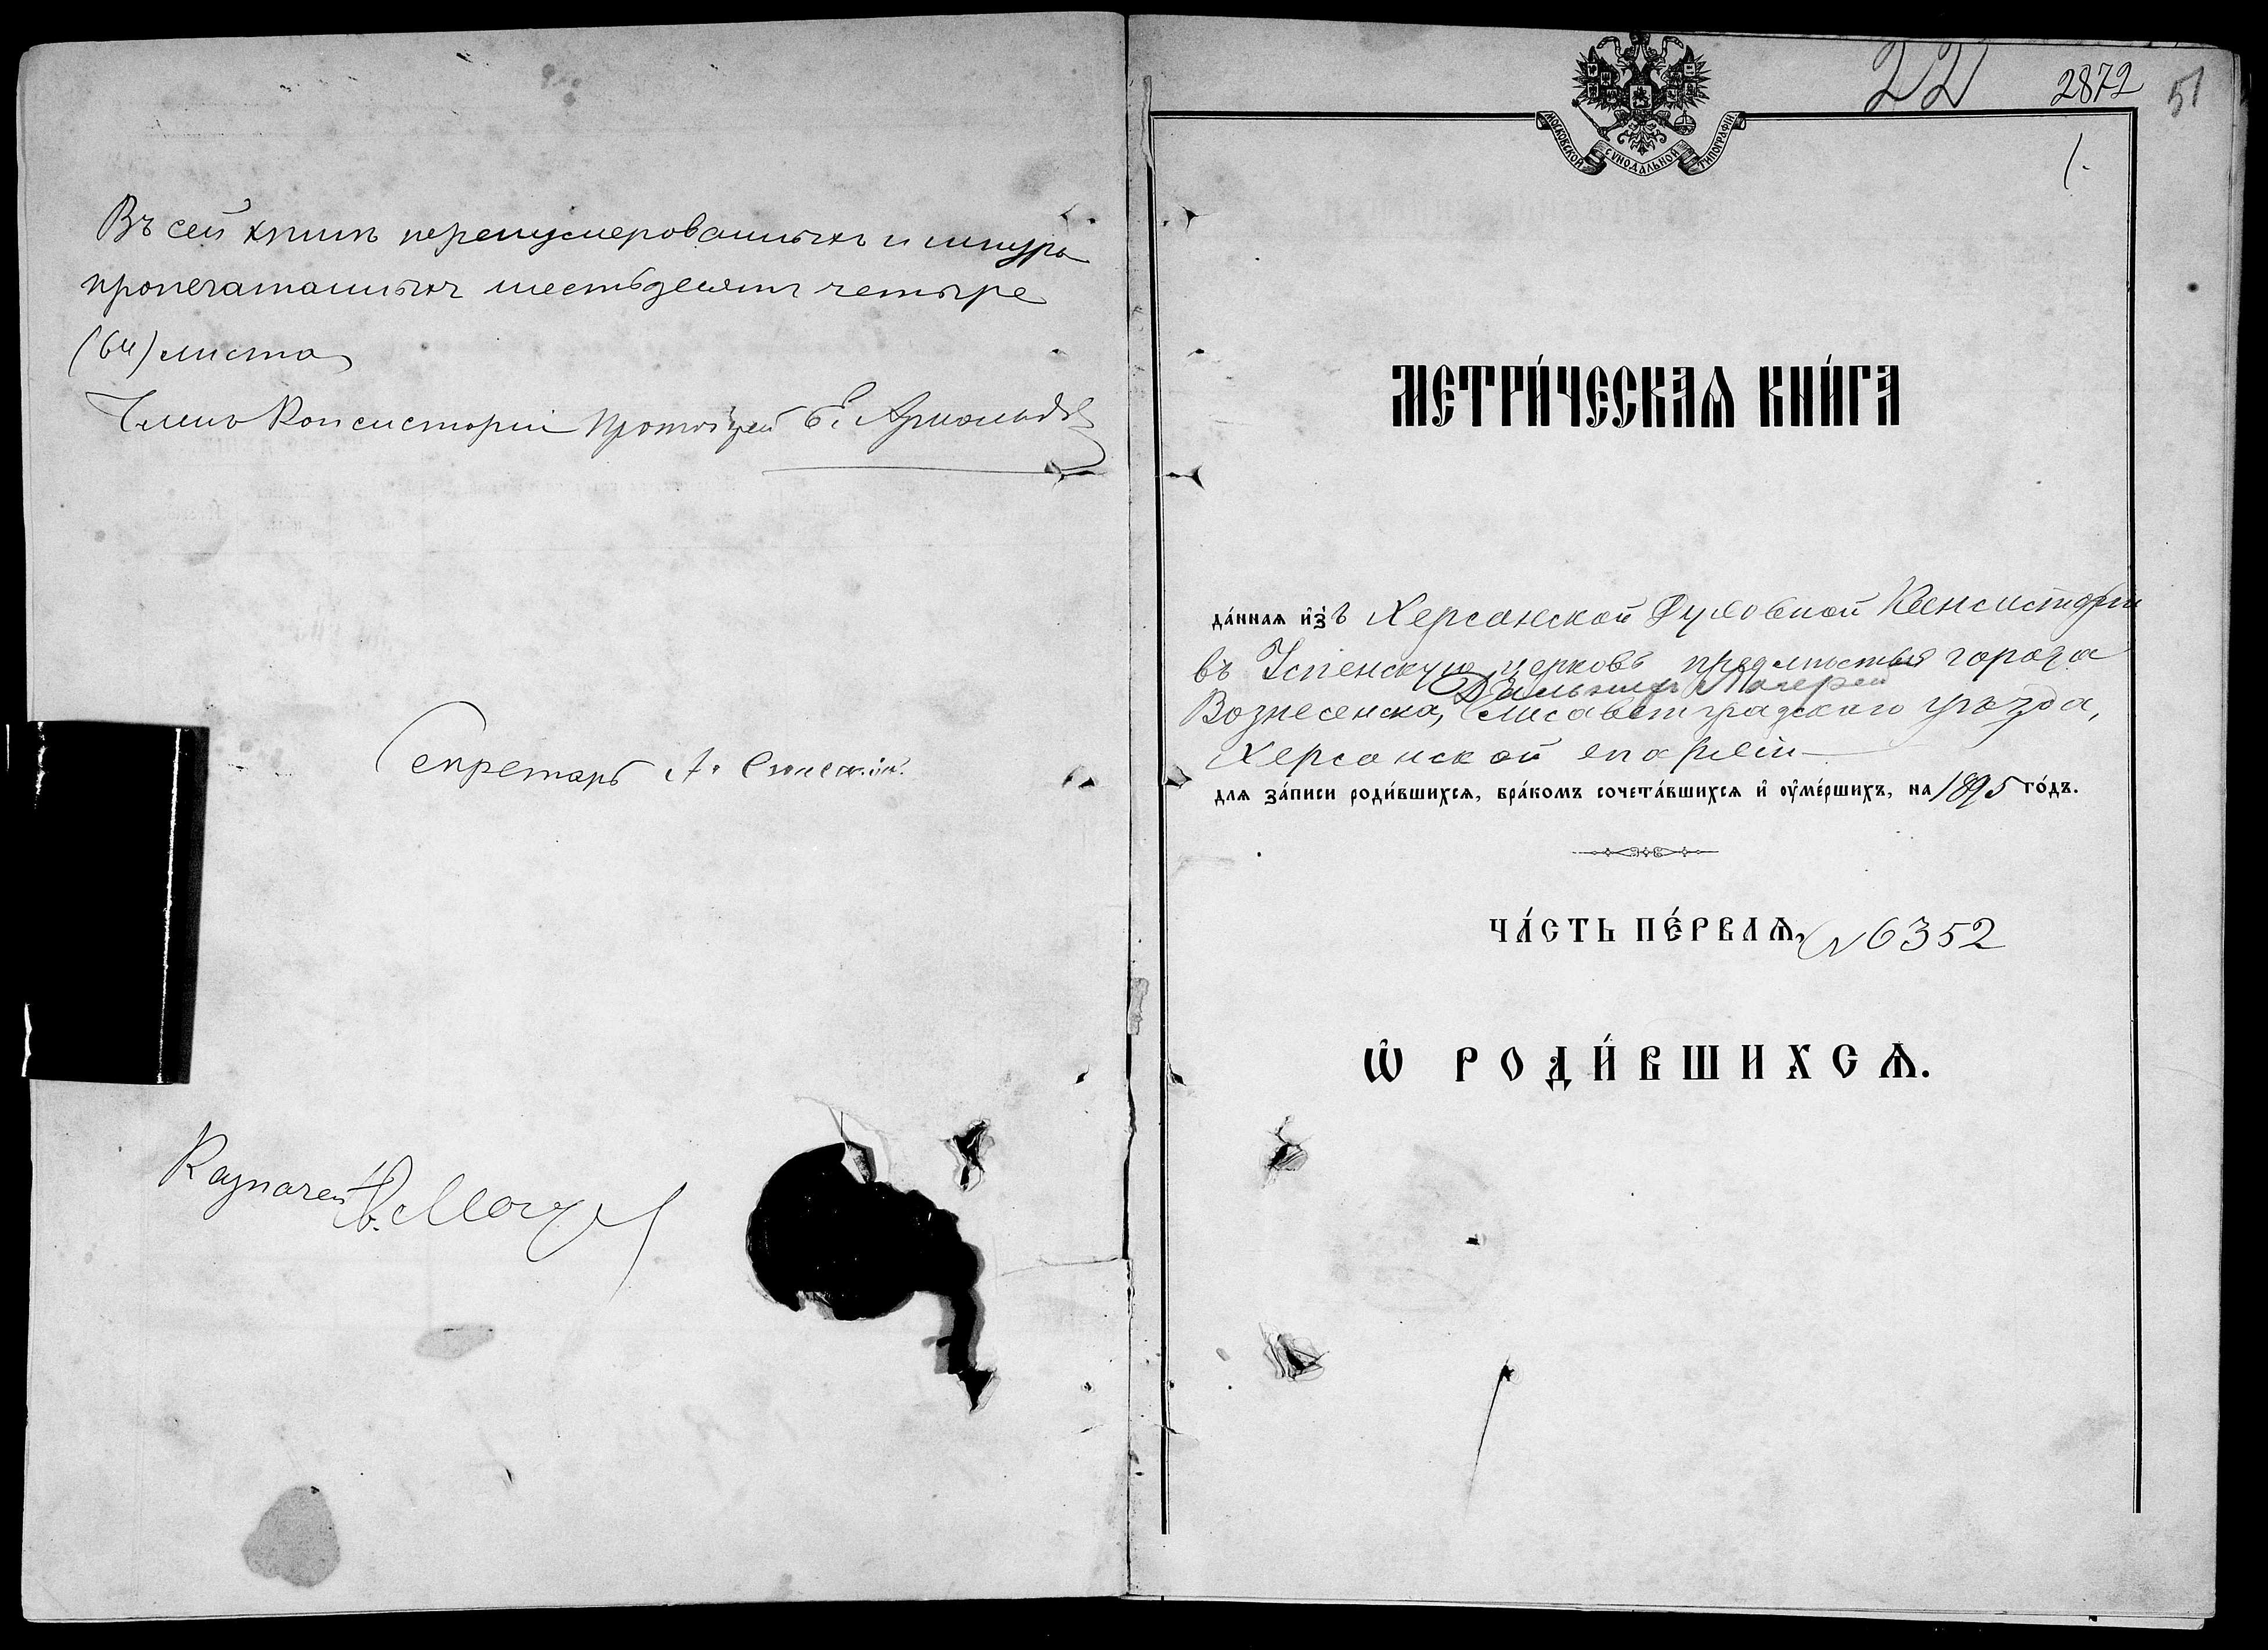 Въ сей книгѣ перенумерованныхъ и шнуро
пропечатанныхъ шестьдесятъ четыре
(64) листа
Членъ Консисторіи Протоіерей Е. Арнольдъ
Секретарь А.
Казначей
МОСКОВСКОЙ СѴНОДАЛЬНОЙ ТИПОГРАФІИ
22 2872 51
1.
МЕТРИ́ЧЕСКАѦ КНИ́ГА
да́ннаѧ и҆зъ Херсонской Духовной Консисторіи
въ Успенскую церковь предмѣстья города
Дальнихъ Лагерей
Вознесенска, Елисаветградскаго уѣзда,
Херсонской епархіи
для за́писи роди́вшихсѧ, бра́комъ сочета́вшихсѧ и҆ ᲂу҆ме́ршихъ, на 1895 го́дъ.
ЧА́СТЬ ПЕ́РВАѦ, № 6352
Ѽ РОДИ́ВШИХСѦ.